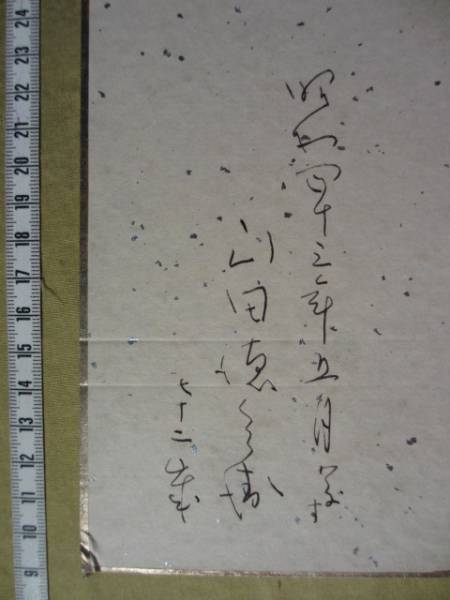 昭和四十三年五月
山田徳兵衛
七十二歳
24 23 22 21 20 19 18 17 16 15 14 13 12 11 10 9